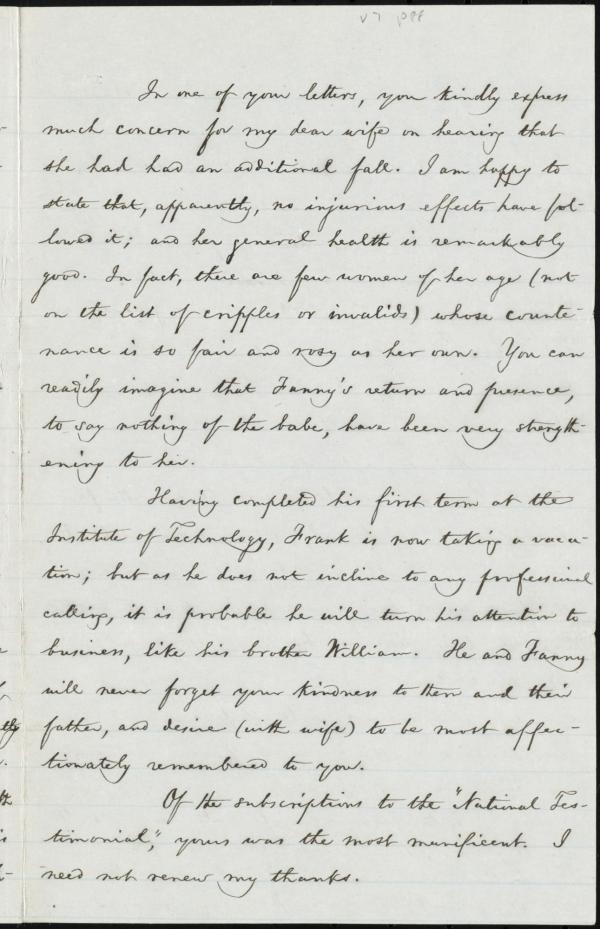 v7 p88
In one of your letters, you kindly express
much concern for my dear wife on hearing that
she had had an additional fall. I am happy to
state that, apparently, no injurious effects have fol-
lowed it; and her general health is remarkably
good. In fact, there are few women of her age (not
on the list of cripples or invalids) whose counte-
nance is so fair and rosy as her own. You can
readily imagine that Fanny's return and presence,
to say nothing of the babe, have been very strength-
ening to her.
Having completed his first term at the
Institute of Technology, Frank is now taking a vaca-
tion; but as he does not incline to any professional
calling, it is probable he will turn his attention to
business, like his brother William. He and Fanny
will never forget your kindness to them and their
father, and desire (with wife) to be most affec-
tionately remembered to you.
Of the subscriptions to the "National Tes-
timonial," yours was the most munificent. I
need not renew my thanks.